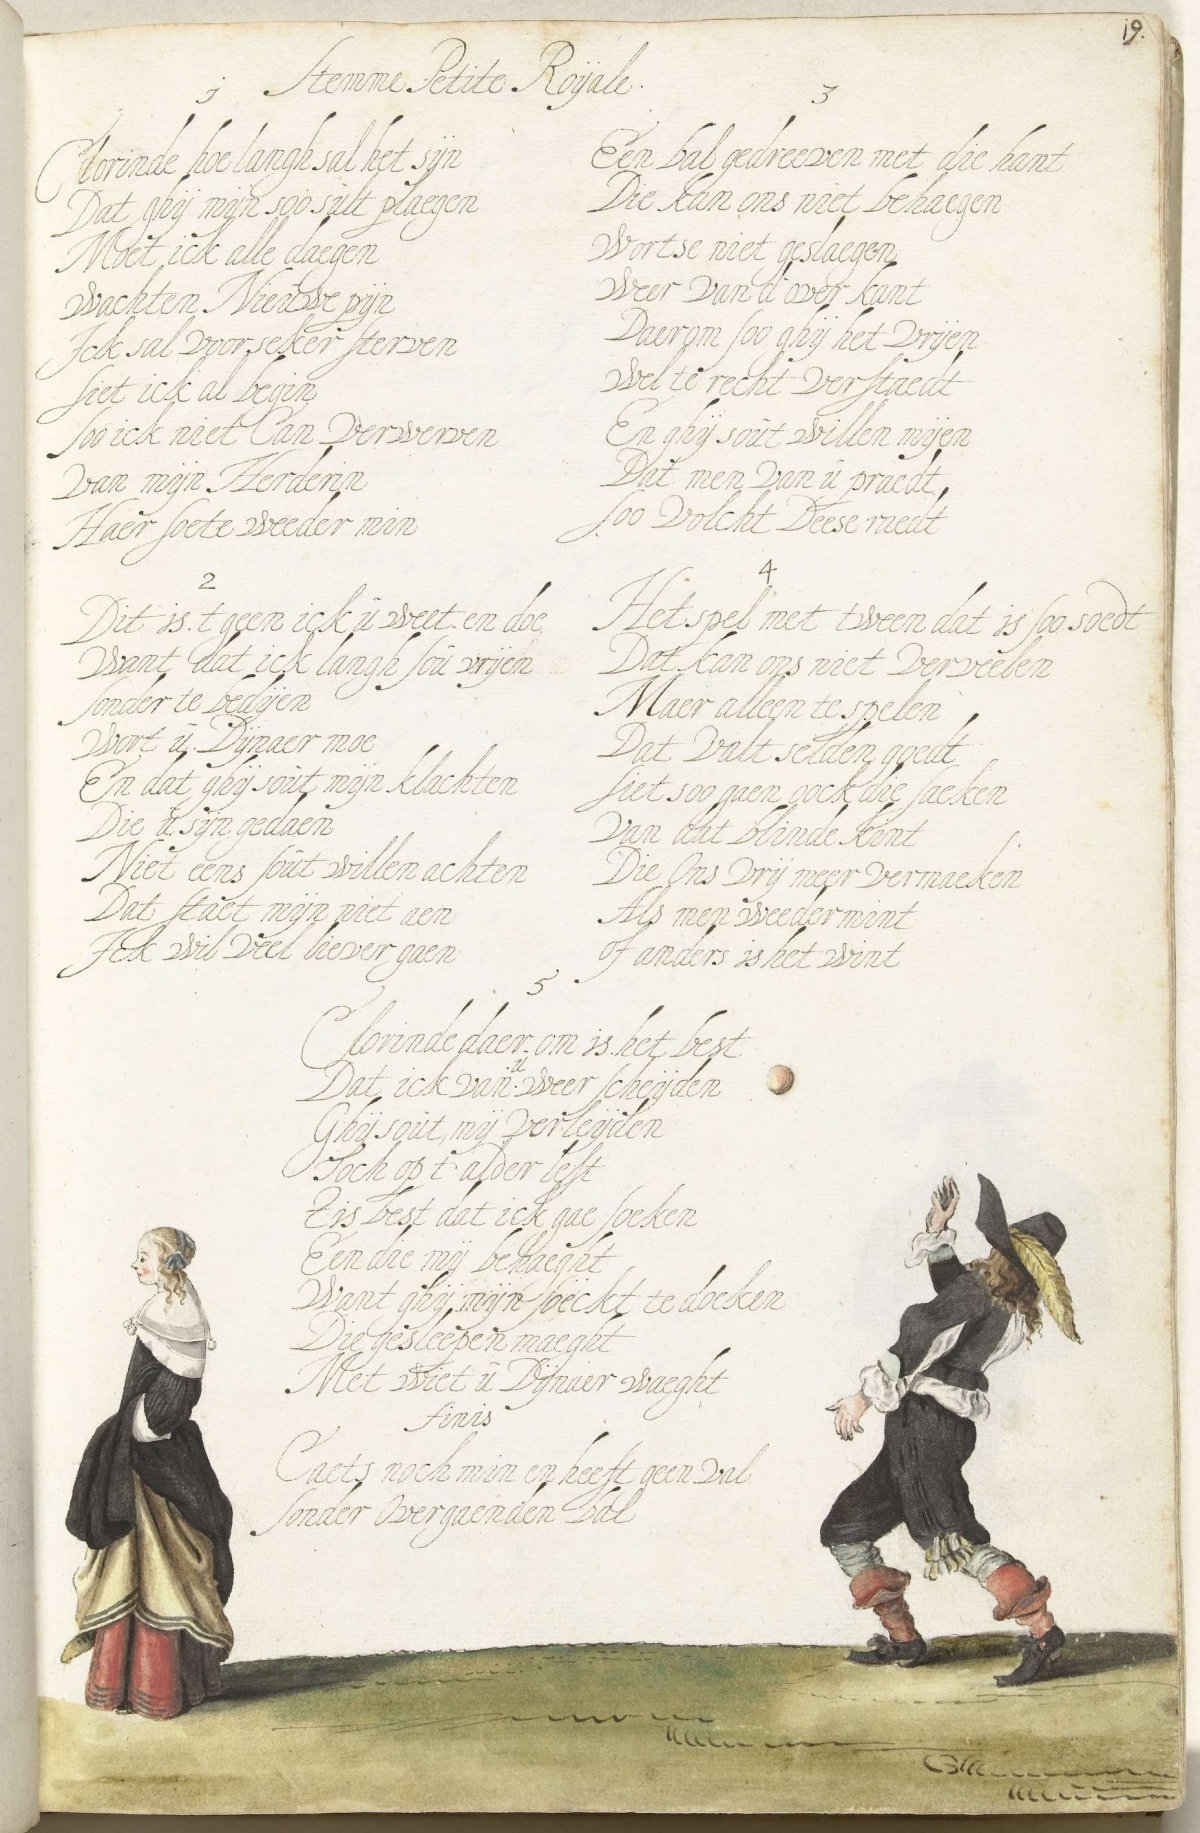 19.
Stemme Petite Royale.
1
Clorinde hoe langh sal het sijn
Dat ghij mijn soo sült plaegen
Moet ick alle daegen
wachten Nieuwe pijn
Ick sal voor seker sterven
siet ick al begin
soo ick niet Can verwerven
van mijn Herderin
Haer soete weeder min
2
Dit is t geen ick ü weet en doe
Want dat ick langh soü vrijen
sonder te bedijen
Wort ü Dijnaer moe
En dat ghij soüt mijn klachten
Die ü sijn gedaen
Niet eens soüt willen achten
Dat staet mijn niet aen
Ick wil veel liever gaen
3
Een bal gedreeven met die hant
Die kan ons niet behaegen
Wortse niet geslaegen
weer van d over kant
Daerom soo ghij het vrijen
wel te recht verstaedt
En ghij soüt willen mijen
Dat men van ü praedt
soo volcht Deese raedt
4
Het spel met tween dat is soo soedt
Dat kan ons niet verveelen
Maer alleen te spelen
Dat valt selden goedt
siet soo gaen oock die saeken
van dat blinde kint
Die Ons vrij meer vermaeken
Als men weeder mint
of anders is het wint
5
Clorinde daer om is het best
Dat ick van ü weer scheijden
Ghij soüt mij verleijden
Toch op t alder lest
Tis best dat ick gae soeken
Een die mij behaeght
Want ghij mijn soeckt te doeken
Die gesleepen maeght
Met wiet ü Dijnaer waeght
finis
Caets noch min en heeft geen val
sonder overgaenden bal